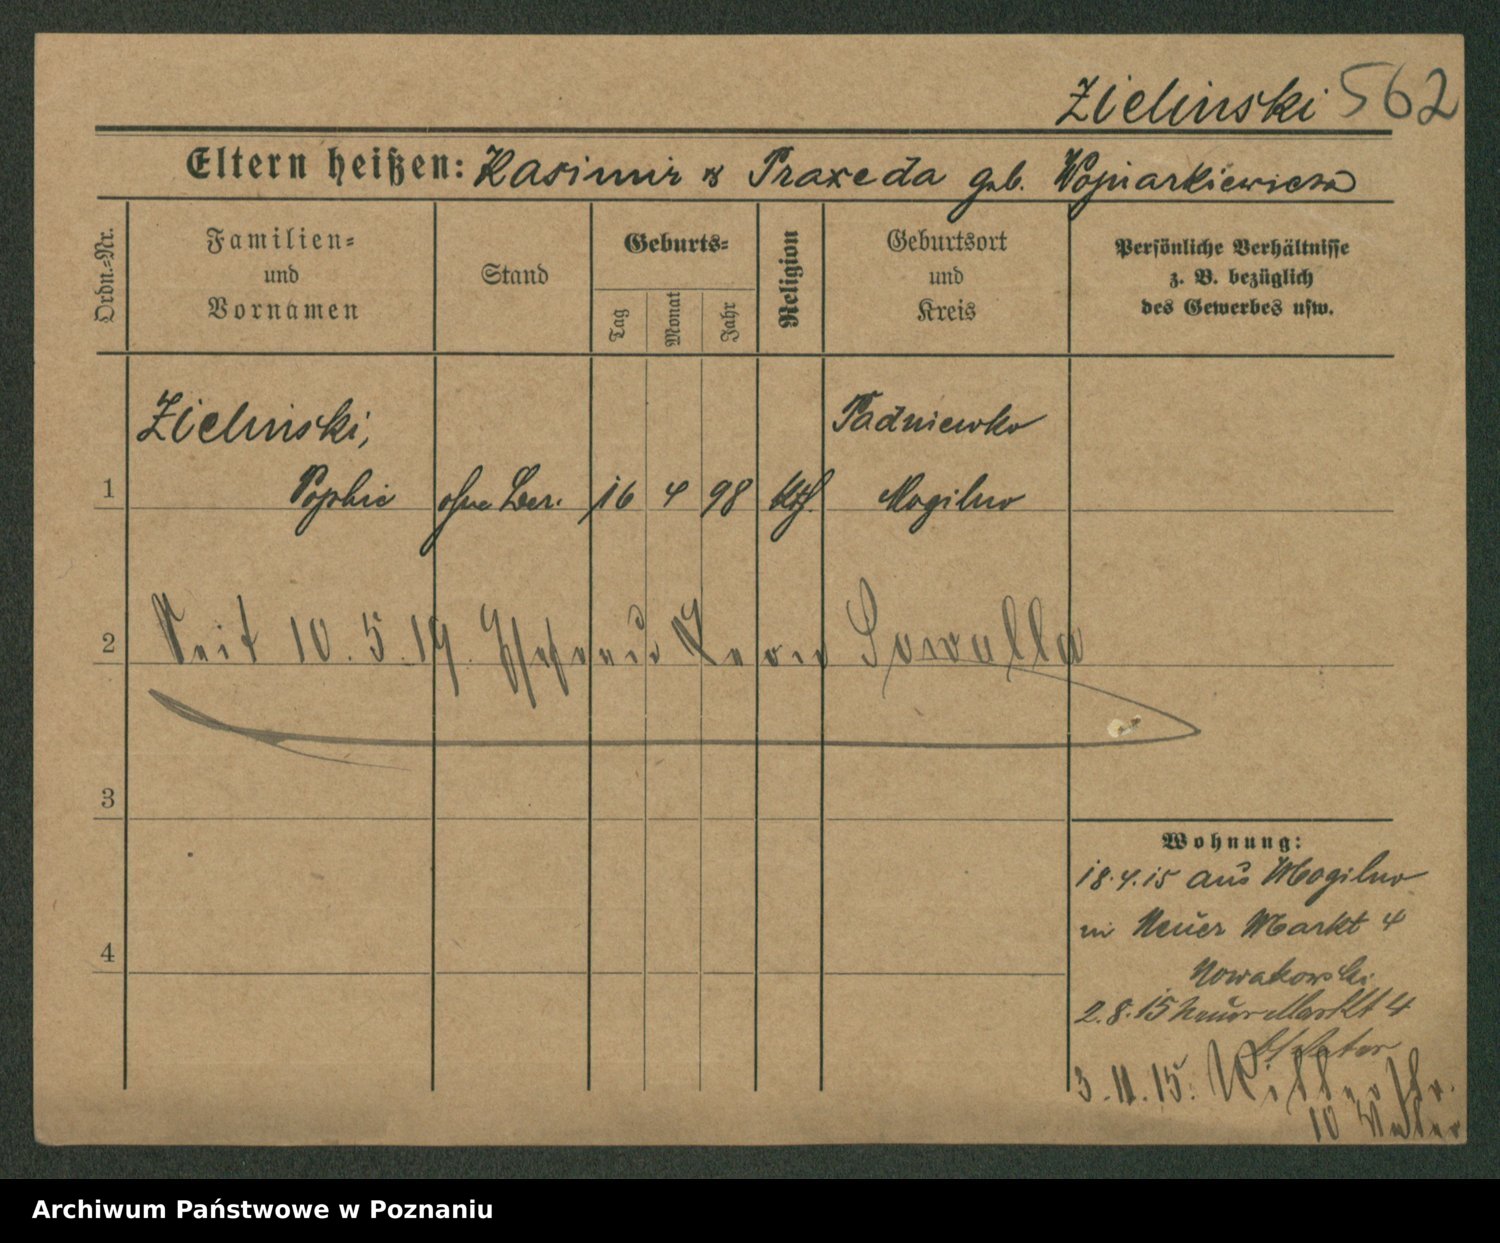 Zielinski 562
Eltern heißen: Kasimir & Praxeda geb.
Ordn.-Nr.
Familien-
und
Vornamen
Stand
Geburts-
Tag
Monat
Jahr
Religion
Geburtsort
und
Kreis
Persönliche Verhältnisse
z. B. bezüglich
des Gewerbes usw.
Zielinski, Padniewko
1 Sophie ohne Ber. 16 4 98 kth. Mogilno
2 Seit 10.5.19. Ehefrau Leon Sowalla
3
Wohnung:
18.4.15 aus Mogilno
in Neuer Markt 4
4
Nowakowski
2.8.15 Neuer Markt 4
3.11.15.
10
Archiwum Państwowe w Poznaniu